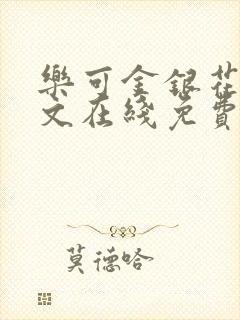 樂可金銀花
文在綫免費
莫德哈